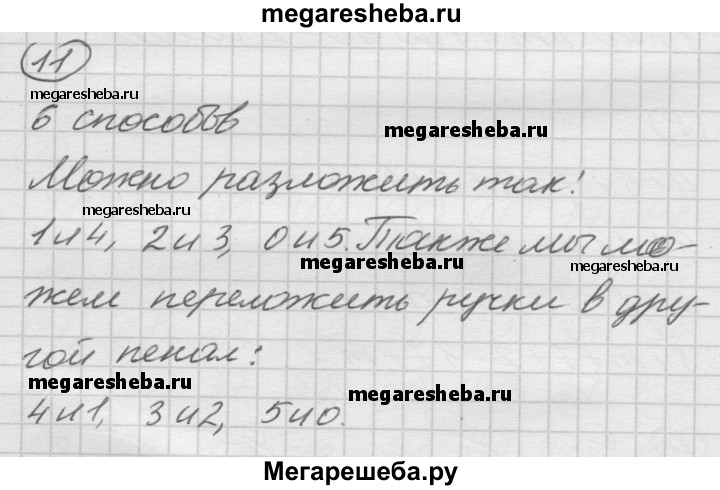 megaresheba.ru
11
megaresheba.ru
6 способов
megaresheba.ru
Можно разложить так:
megaresheba.ru
1 и 4, 2 и 3, 0 и 5. Также мы мо-
megaresheba.ru
megaresheba.ru
жем переложить ручки в дру-
гой пенал:
megaresheba.ru
megaresheba.ru
4 и 1, 3 и 2, 5 и 0.
Мегарешеба.ру